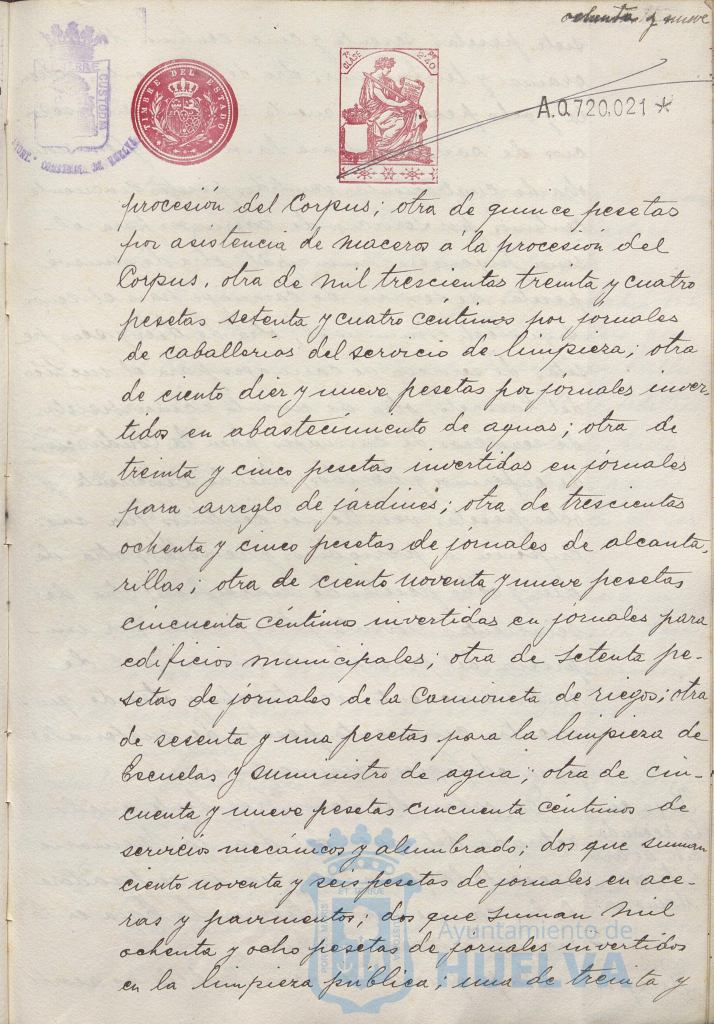 ochenta y nueve
CUSTODIA
AYUNT.º CONSTITUCL. DE HUELVA
TIMBRE DEL ESTADO
7ª CLASE
PTS 2'40
A.0,720,021 *
procesión del Corpus; otra de quince pesetas
por asistencia de maceros á la procesión del
Corpus, otra de mil trescientas treinta y cuatro
pesetas setenta y cuatro céntimos por jornales
de caballerías del servicio de limpieza; otra
de ciento diez y nueve pesetas por jornales inver-
tidos en abastecimiento de aguas; otra de
treinta y cinco pesetas invertidas en jornales
para arreglo de jardines; otra de trescientas
ochenta y cinco pesetas de jornales de alcanta-
rillas; otra de ciento noventa y nueve pesetas
cincuenta céntimos invertidas en jornales para
edificios municipales; otra de setenta pe-
setas de jornales de la Camioneta de riegos; otra
de sesenta y una pesetas para la limpieza de
Escuelas y suministro de agua; otra de cin-
cuenta y nueve pesetas cincuenta céntimos de
servicios mecánicos y alumbrado; dos que suman
ciento noventa y seis pesetas de jornales en ace-
ras y pavimentos; dos que suman mil
ochenta y ocho pesetas de jornales invertidos
en la limpieza pública; una de treinta y
Ayuntamiento de
HUELVA